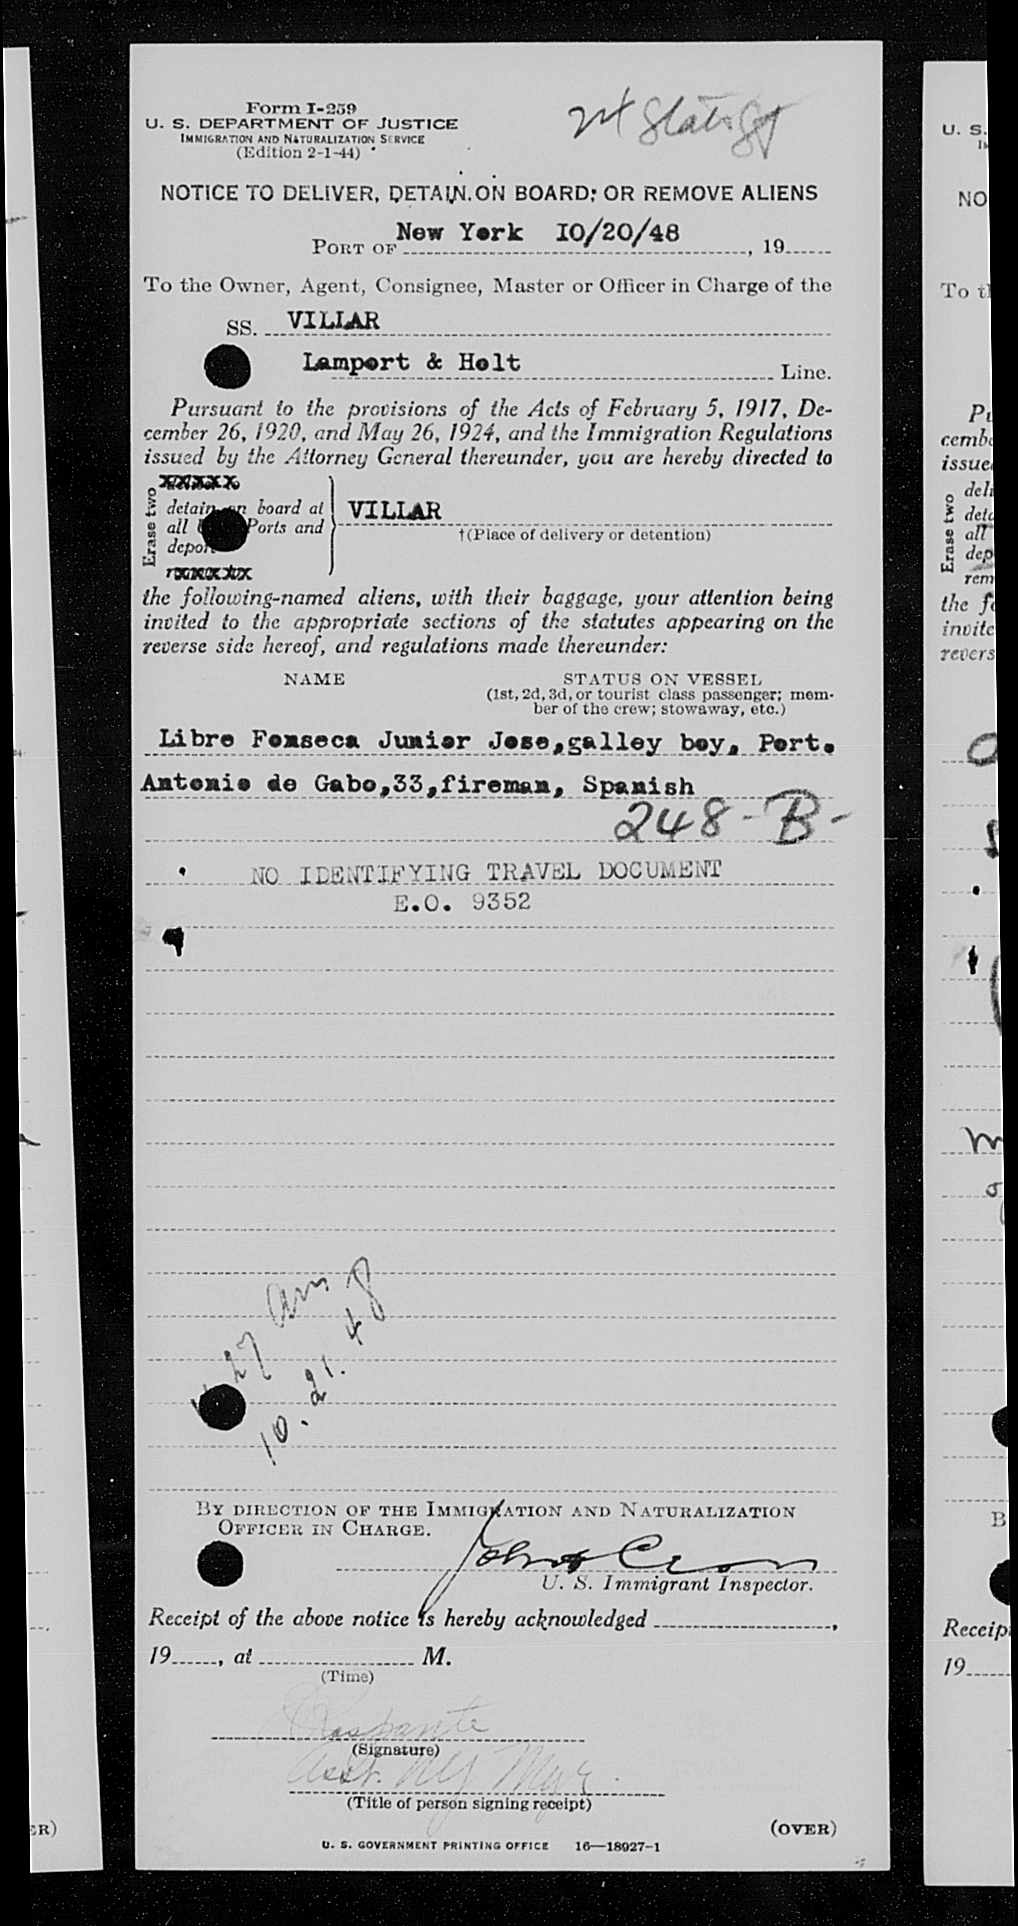 Form I-259
U. S. DEPARTMENT OF JUSTICE
IMMIGRATION AND NATURALIZATION SERVICE
(Edition 2-1-44)
NOTICE TO DELIVER, DETAIN ON BOARD; OR REMOVE ALIENS
PORT OF New York 10/20/48, 19
To the Owner, Agent, Consignee, Master or Officer in Charge of the
SS. VILLAR
Lamport & Holt Line.
Pursuant to the provisions of the Acts of February 5, 1917, De-
cember 26, 1920, and May 26, 1924, and the Immigration Regulations
issued by the Attorney General thereunder, you are hereby directed to
Erase two
detain on board at
all Ports and
VILLAR
†(Place of delivery or detention)
the following-named aliens, with their baggage, your attention being
invited to the appropriate sections of the statutes appearing on the
reverse side hereof, and regulations made thereunder:
NAME STATUS ON VESSEL
(1st, 2d, 3d, or tourist class passenger; mem-
ber of the crew; stowaway, etc.)
Libre Fonseca Junior Jose,galley boy, Port.
Antonio de Gabo,33,fireman, Spanish
248-B-
NO IDENTIFYING TRAVEL DOCUMENT
E.O. 9352
27 am
10.21.48
BY DIRECTION OF THE IMMIGRATION AND NATURALIZATION
OFFICER IN CHARGE.
U. S. Immigrant Inspector.
Receipt of the above notice is hereby acknowledged ,
19 , at M.
(Time)
(Signature)
(Title of person signing receipt)
(OVER)
U. S. GOVERNMENT PRINTING OFFICE 16—18927-1